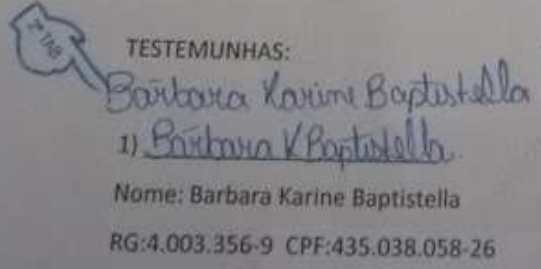 2º TAB
TESTEMUNHAS:
Barbara Karine Baptistella
1) Barbara K Baptistella
Nome: Barbara Karine Baptistella
RG:4.003.356-9 CPF:435.038.058-26